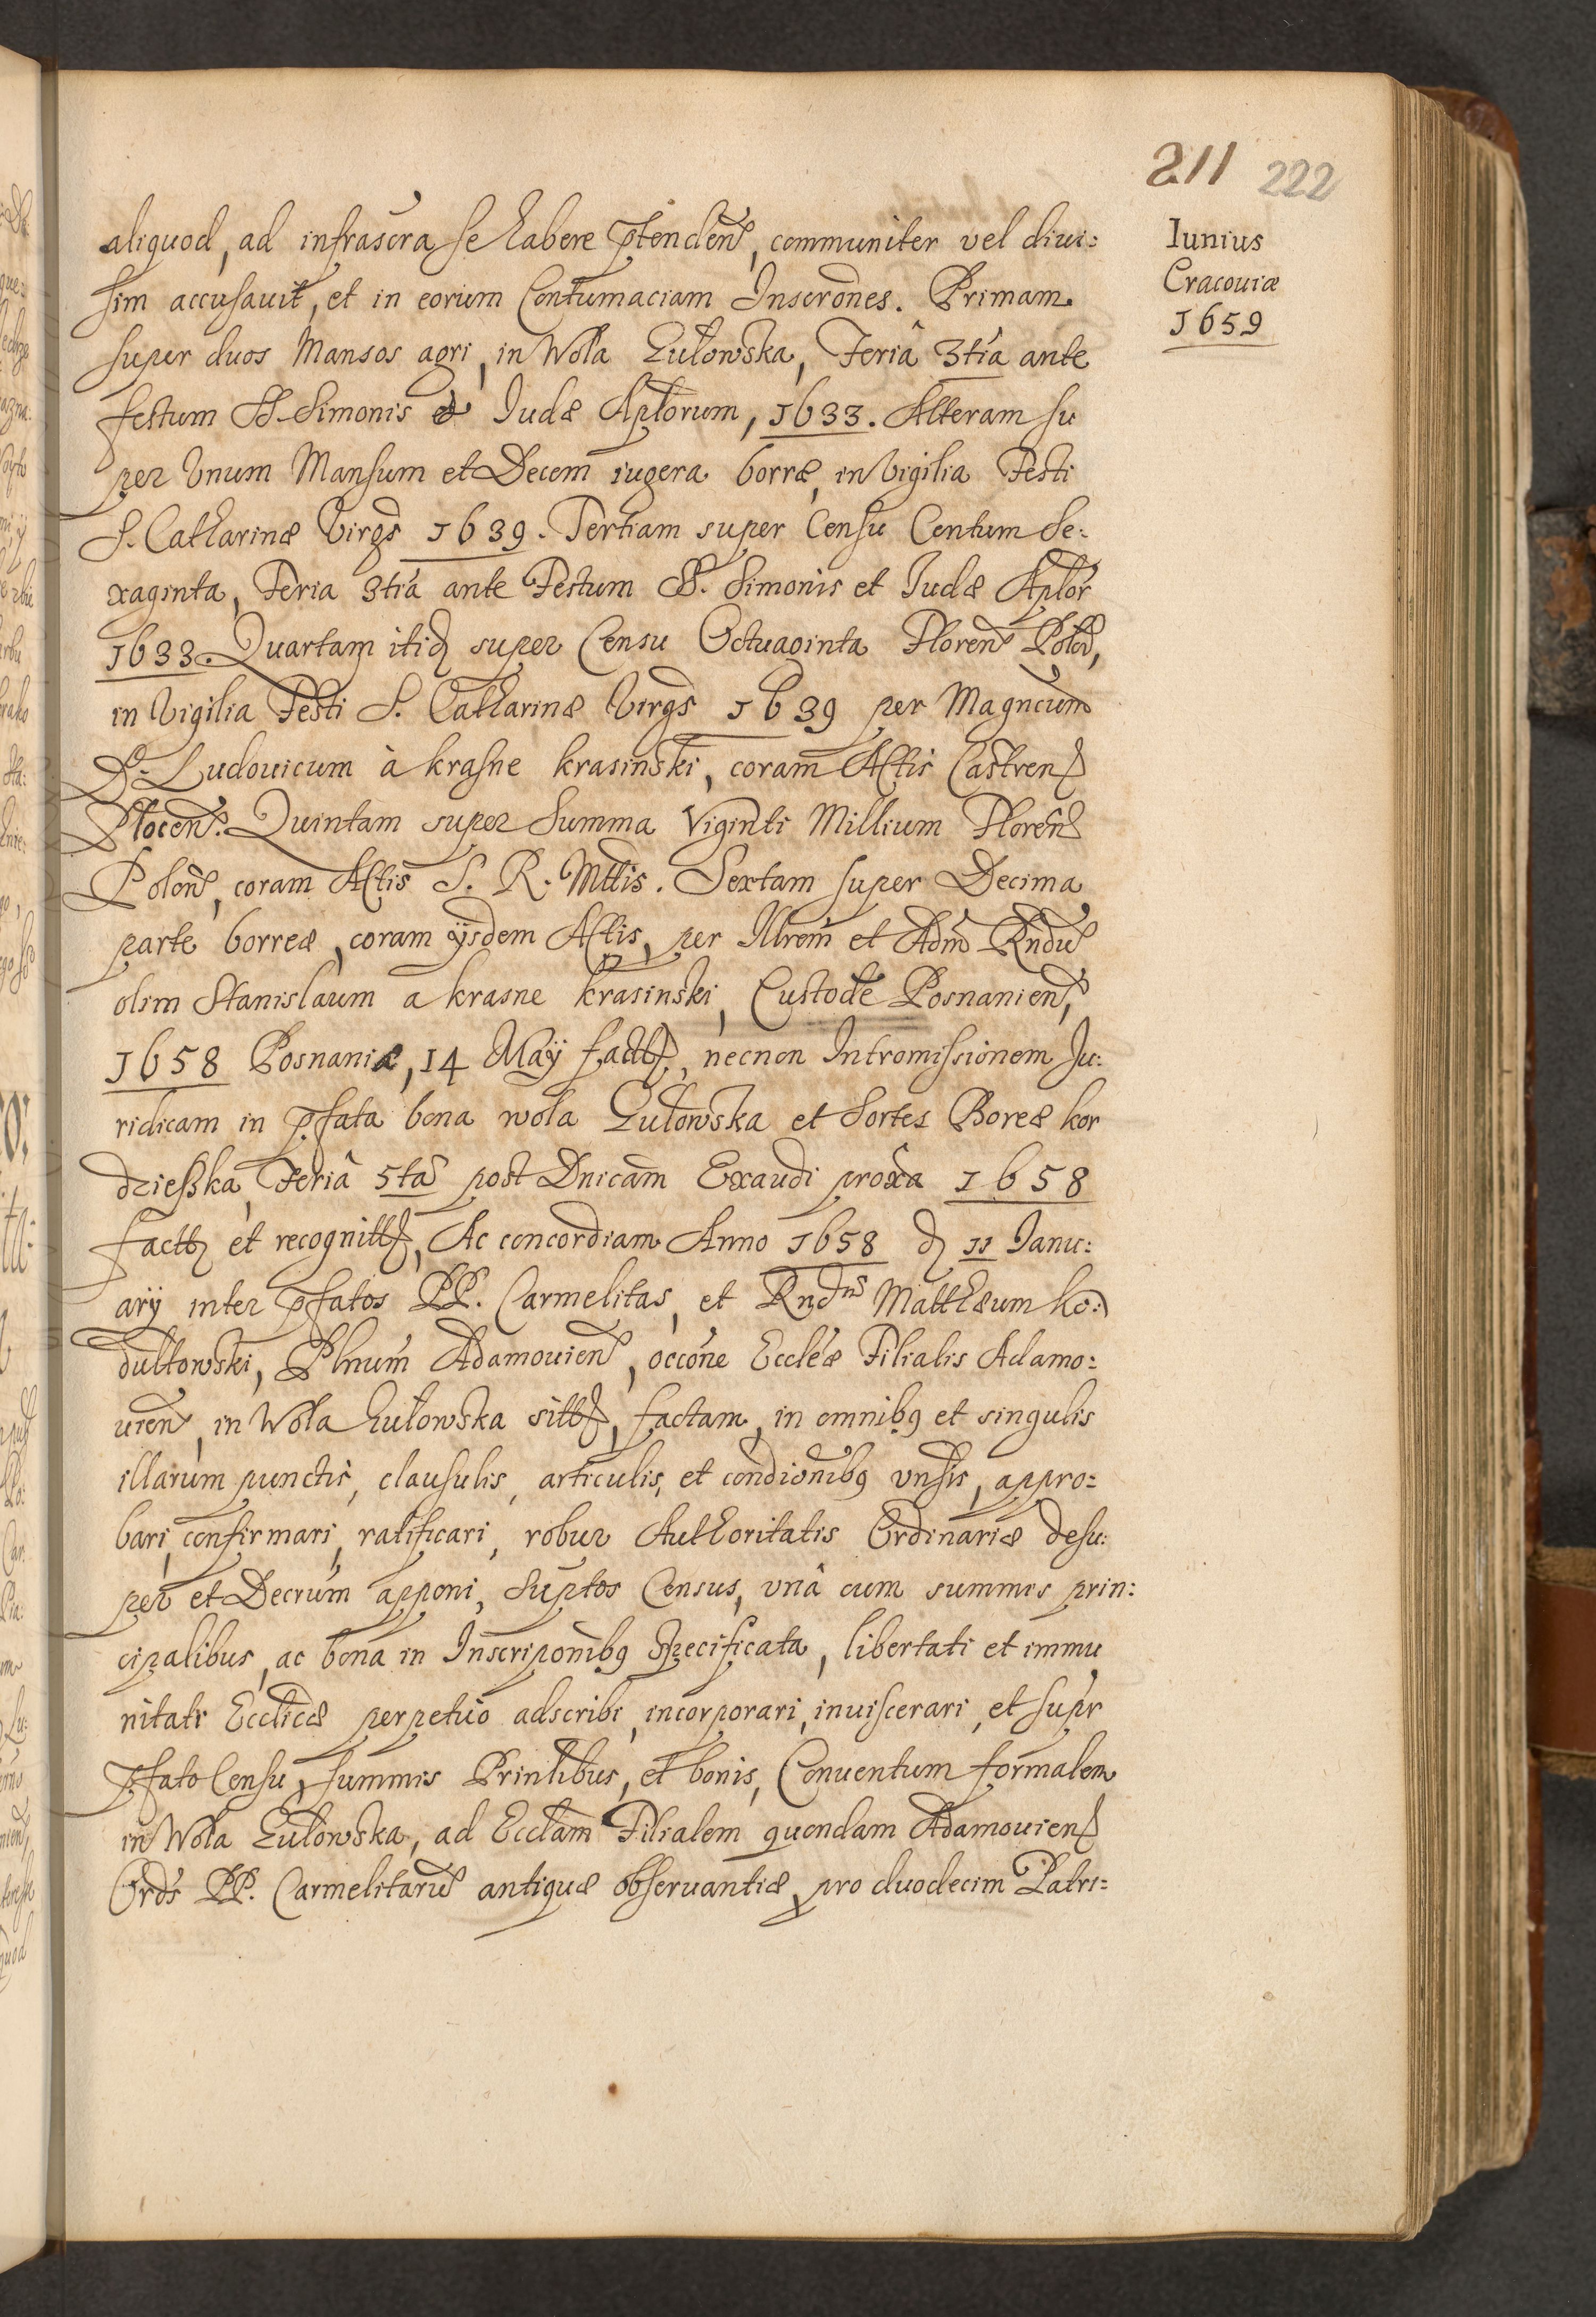 211 222
Iunius
Cracouiæ
1659
aliquod, ad infrascra se habere ptenden, communiter vel diui:
sim accusauit, et in eorum Contumaciam Inscrones. Primam
super duos Mansos agri, in Wola Gułowska, Feriâ 3tia ante
festum SS. Simonis et Iudæ Aplorum, 1633. Alteram su
per Vnum Mansum et Decem iugera borræ, in Vigilia Festi
S. Catharinæ Virgs 1639. Tertiam super Censu Centum Se:
xaginta, Feria 3tia ante Festum SS. Simonis et Iudæ Aplor
1633. Quartam itid super Censu Octuaginta Floren Polon,
in Vigilia Festi S. Catharinæ Virgs 1639 per Magncum
D. Ludouicum à krasne krasinski, coram Actis Castren
Plocen. Quintam super Summa Viginti Millium Floren
Polon, coram Actis S. R. Mttis. Sextam super Decima
parte borreæ, coram ÿsdem Actis, per Illrem et Adm Rndu
olim Stanislaum a krasne krasinski, Custode Posnanien,
1658 Posnaniæ, 14 Maÿ factt, necnon Intromissionem Iu:
ridicam in pfata bona wola Gułowska et Sortes Boreæ kor
dzieska, Feriâ 5ta post Dnicam Exaudi proxa 1658
factt et recognitt, Ac concordiam Anno 1658 d 11 Ianu:
arÿ inter pfatos PP. Carmelitas, et Rndm Matthæum ko:
dułtowski, Plnum Adamouien, occóne Eccléæ Filialis Adamo:
uien, in Wola Gułowska sitt, factam, in omnibq et singulis
illarum punctis, clausulis, articulis, et condionibq vnsis, appro:
bari, confirmari, ratificari, robur Authoritatis Ordinariæ desu:
per et Decrum apponi, Suptos Census, vnâ cum summis prin:
cipalibus, ac bona in Inscriponibq Specificata, libertati et immu
nitati Ecclicæ perpetuo adscribi, incorporari, inuiscerari, et supr
pfato Censu, summis Prinlibus, et bonis, Conuentum formalem
in Wola Gułowska, ad Ecclam Filialem quondam Adamouien
Ords PP. Carmelitaru antiquæ obseruantiæ, pro duodecim Patri: